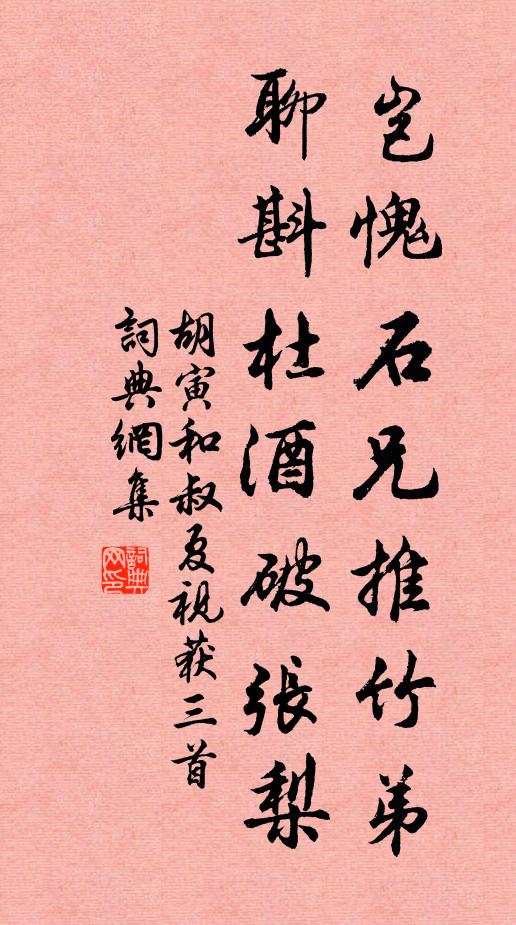 豈愧石兄推竹弟
聊斟杜酒破張梨
胡寅和叔夏視获三首
詞典網集
詞典
网印